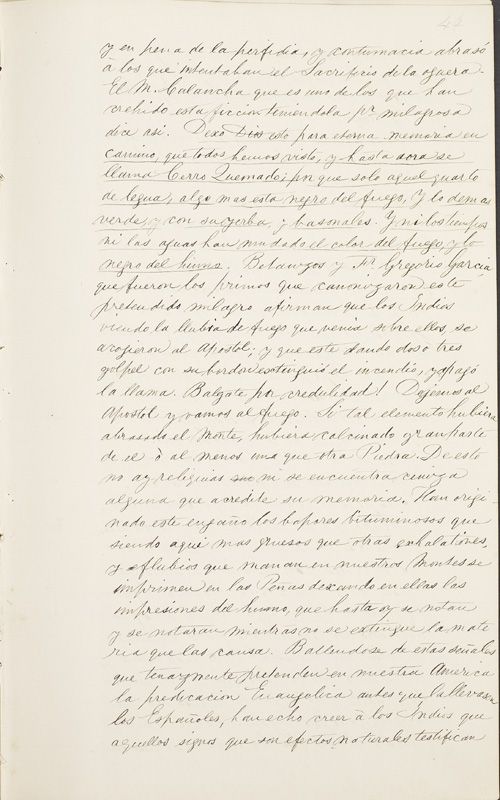 44
y en pena de la perfidia, y contumacia abrasó
à los que intentaban el Sacrificio de la oguera.
El M. Calancha que es uno de los que han
crehido esta ficcion teniendola pr. milagrosa
dice asi. Dexó Dios esto para eterna memoria en
camino, que todos hemos visto, y hasta aora se
llama Cerro Quemado; por que solo aquel quarto
de legua, algo mas esta negro del fuego, y lo demas
verde, y con su yerba, y basonales. Y ni los tiempos
ni las aguas han mudado el color del fuego, y lo
negro del humo. Betanzos y Fr. Gregorio Garcia
que fueron los primos que canonizaron este
pretendido milagro afirman que los Indios
viendo la llubia de fuego que venia sobre ellos, se
acojieron al Apostol; y que este dando dos o tres
golpes con su bordon extinguió el incendio, y apagó
la llama. Balgate por credulidad! Dejemos al
Apostol y vamos al fuego. Si tal elemento hubiera
abrasado el Monte, hubiera calcinado gran parte
de el ò al menos una que otra Piedra. De esto
no ay religuias ni se encuentra ceniza
alguna que acredite su memoria. Han origi
nado este engaño los bapores bituminosos que
siendo aqui mas gruesos que otras exhalationes,
y eflubios que manan en nuestros Montes se
imprimen en las Peñas dexando en ellas las
impresiones del humo, que hasta oy se notan
y se notaran mientras no se extingue la mate
ria que las causa. Baliendose de estas señales
que tenazmente pretenden en nuestra America
la predicacion Evangelica antes que la llevasen
los Españoles, han echo creer à los Indios que
aquellos signos que son efectos naturales testifican